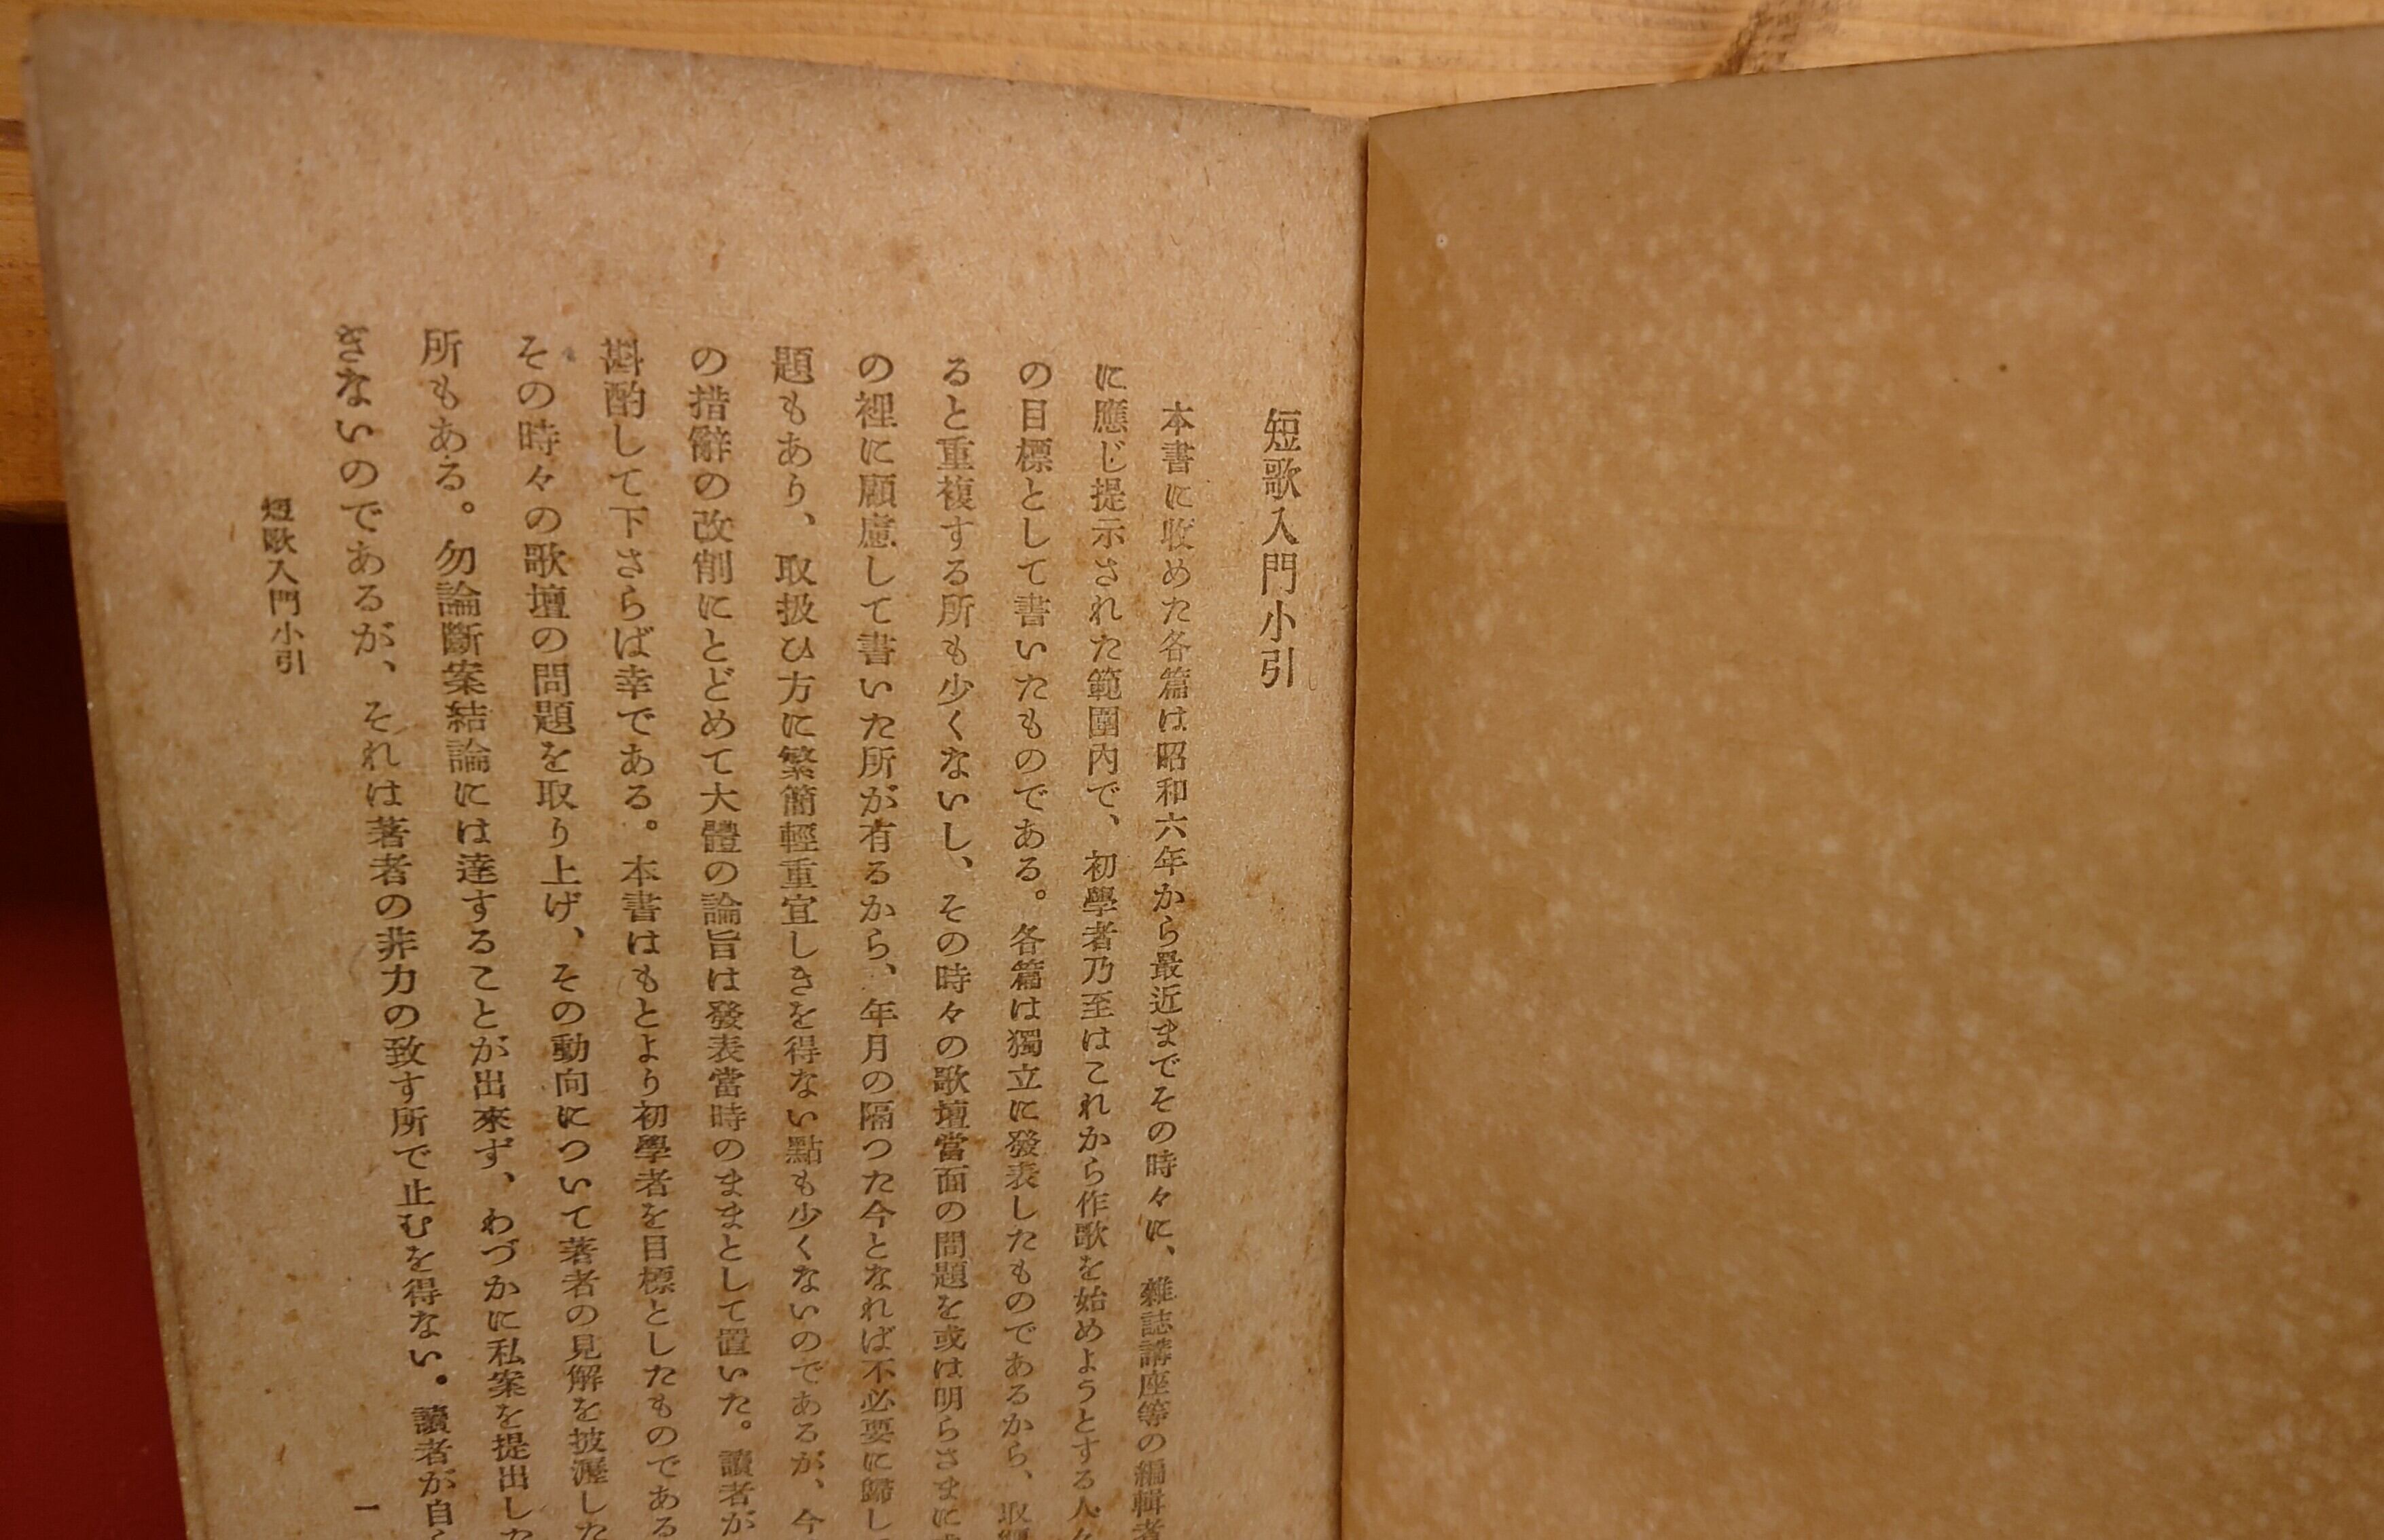 短歌入門小引
本書に收めた各篇は昭和六年から最近までその時々に、雜誌講座等の編輯者
に應じ提示された範圍内で、初學者乃至はこれから作歌を始めようとする人々
の目標として書いたものである。各篇は獨立に發表したものであるから、取
ると重複する所も少くないし、その時々の歌壇當面の問題を或は明らさまに
の裡に顧慮して書いた所が有るから、年月の隔つた今となれば不必要に歸し
題もあり、取扱ひ方に繁簡輕重宜しきを得ない點も少くないのであるが、今
の措辭の改削にとどめて大體の論旨は發表當時のままとして置いた。讀者が
斟酌して下さらば幸である。本書はもとより初學者を目標としたものである
その時々の歌壇の問題を取り上げ、その動向について著者の見解を披瀝した
所もある。勿論斷案結論には達することが出來ず、わづかに私案を提出した
きないのであるが、それは著者の非力の致す所で止むを得ない。讀者が自
短歌入門小引
一